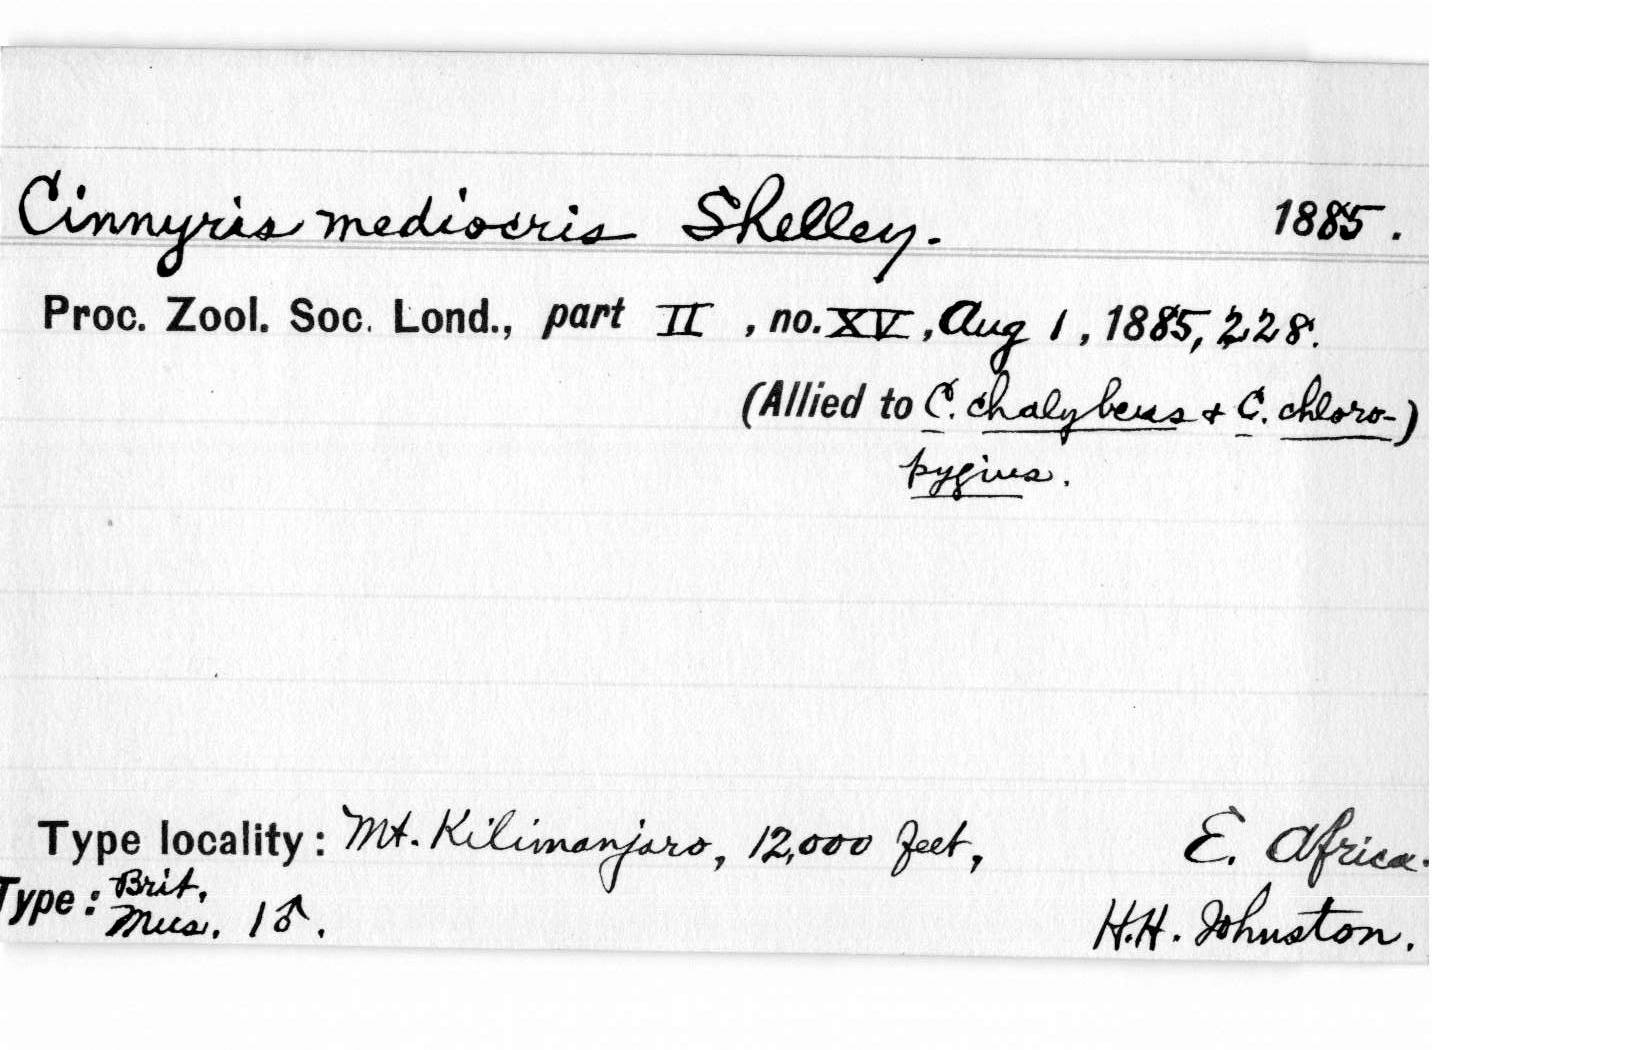 Cinnyris mediocris Shelley. 1885.
Proc. Zool. Soc. Lond., part II, no. XV, Aug 1, 1885, 228.
(Allied to C. chalybeus & C. chloro-)
pygius.
Type locality: Mt. Kilimanjaro, 12,000 feet, E. Africa.
Type: Brit. Mus. 1♂. H.H. Johnston.